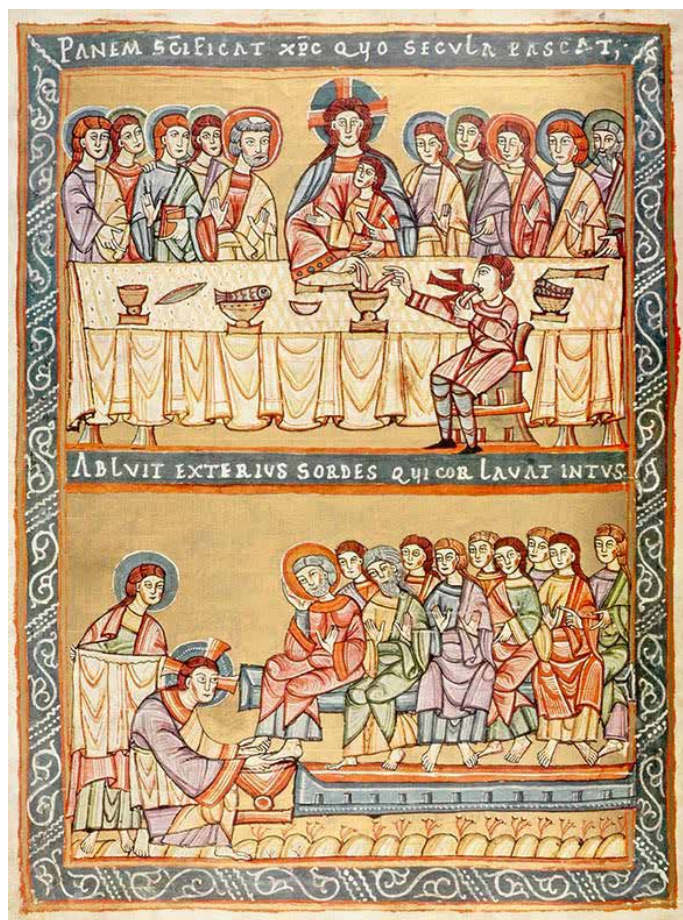 PANEM SCIFICAT XPC QUO SECULA PASCAT;
ABLUIT EXTERIUS SORDES QUI COR LAVAT INTUS